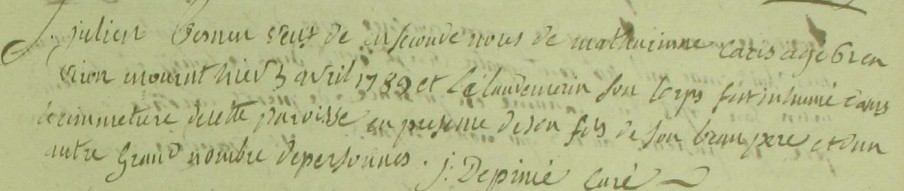 J. julien Besnier veuf de en seconde nous de mathurinne Caris agé 61 en
viron mourut hier 3 avril 1789 et Le landemain son corps fut inhumé dans
le cimmetiere de cette paroisse en presence de son fils de son beau pere et d'un
autre Grand nombre de personnes. j: Depinié Curé